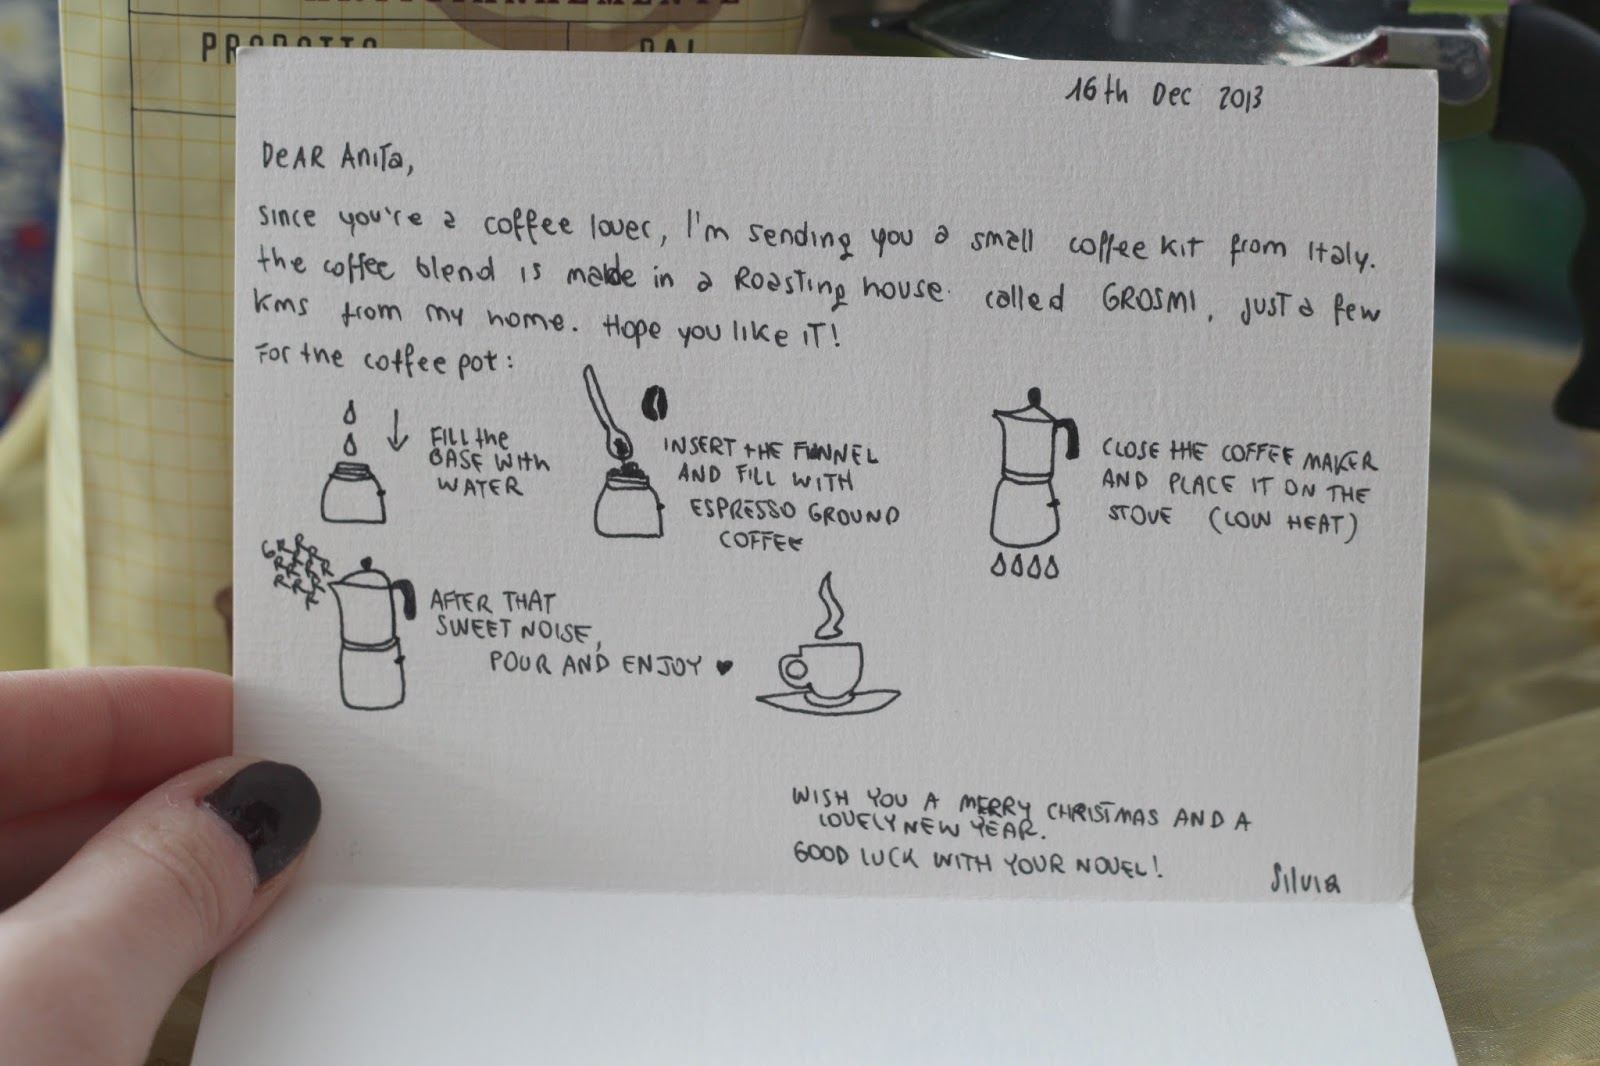 PRODOTTO
DAL
16th Dec 2013
DeAR Anita,
since you're a coffee lover, I'm sending you a small coffee kit from Italy.
the coffee blend is made in a Roasting house called GROSMI, just a few
kms from my home. Hope you like iT!
For the coffee pot:
FILL the
BASE WITH
WATER
INSERT tHE FUNNEL
AND FILL WITH
ESPRESSO GROUND
COFFEE
CLOSE tHE COFFEE MAKER
AND PLACE IT ON THE
STOVE (LOW HEAT)
GRRR
RRRR
RRR
R
AFTER THAT
SWEET NOISE,
POUR AND ENJOY ♥
WISH YOU A MERRY CHRISTMAS AND A
LOVELY NEW YEAR.
GOOD LUCK WITH YOUR NOVEL!
Silvia